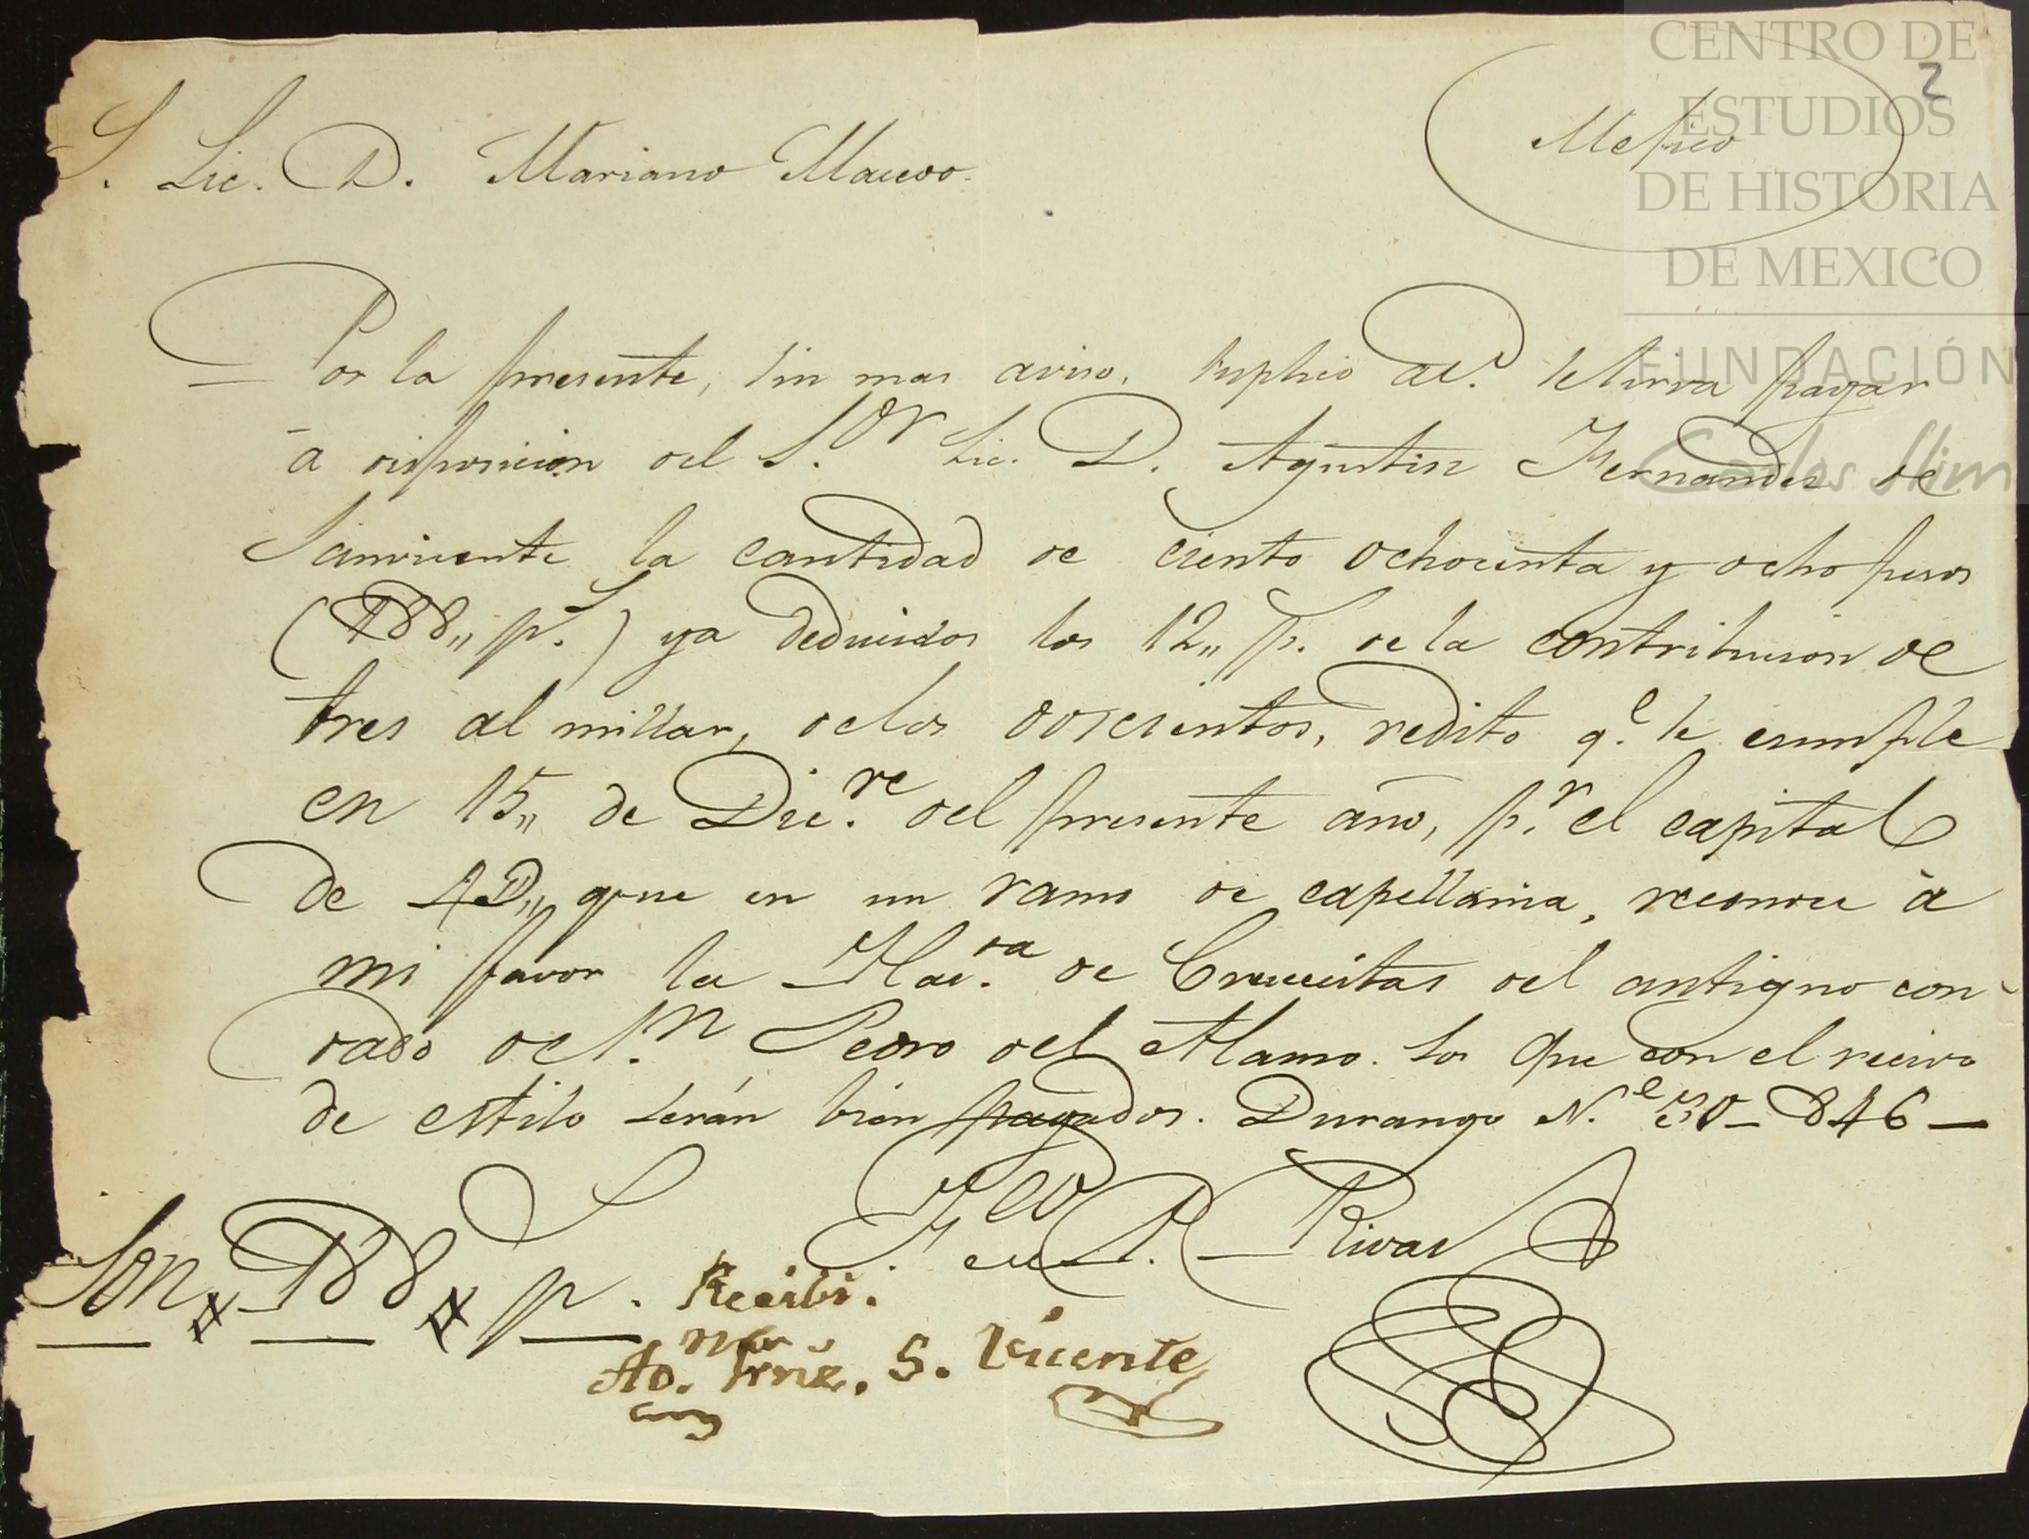 2
Mejico
S. Lic. D. Mariano Macedo.
Por la presente, sin mas aviso, suplico a V. se sirva pagar
à disposicion del S.or Lic. D. Agustin Fernandez de
Sanvicente la cantidad de ciento ochocenta y ocho pesos
(188,, p.s) ya deducidos los 12,, p. de la contribucion de
tres al millar, de los doscientos, redito q.e se cumple
en 15,, de Dic.re del presente año, p.r el capital
de 4D,, que en un ramo de capellania, reconoce à
mi favor la Hac.da de Crucesitas del antiguo con-
dado de S.n Pedro del Alamo. los que con el recivo
de estilo serán bien pagados. Durango N.e 30 - 846 -
Fco P. Rivas
Son # 188 # p.s
Recibi.
Ao. Frnz. S. Vicente
CENTRO DE
ESTUDIOS
DE HISTORIA
DE MEXICO
FUNDACIÓN
Carlos Slim